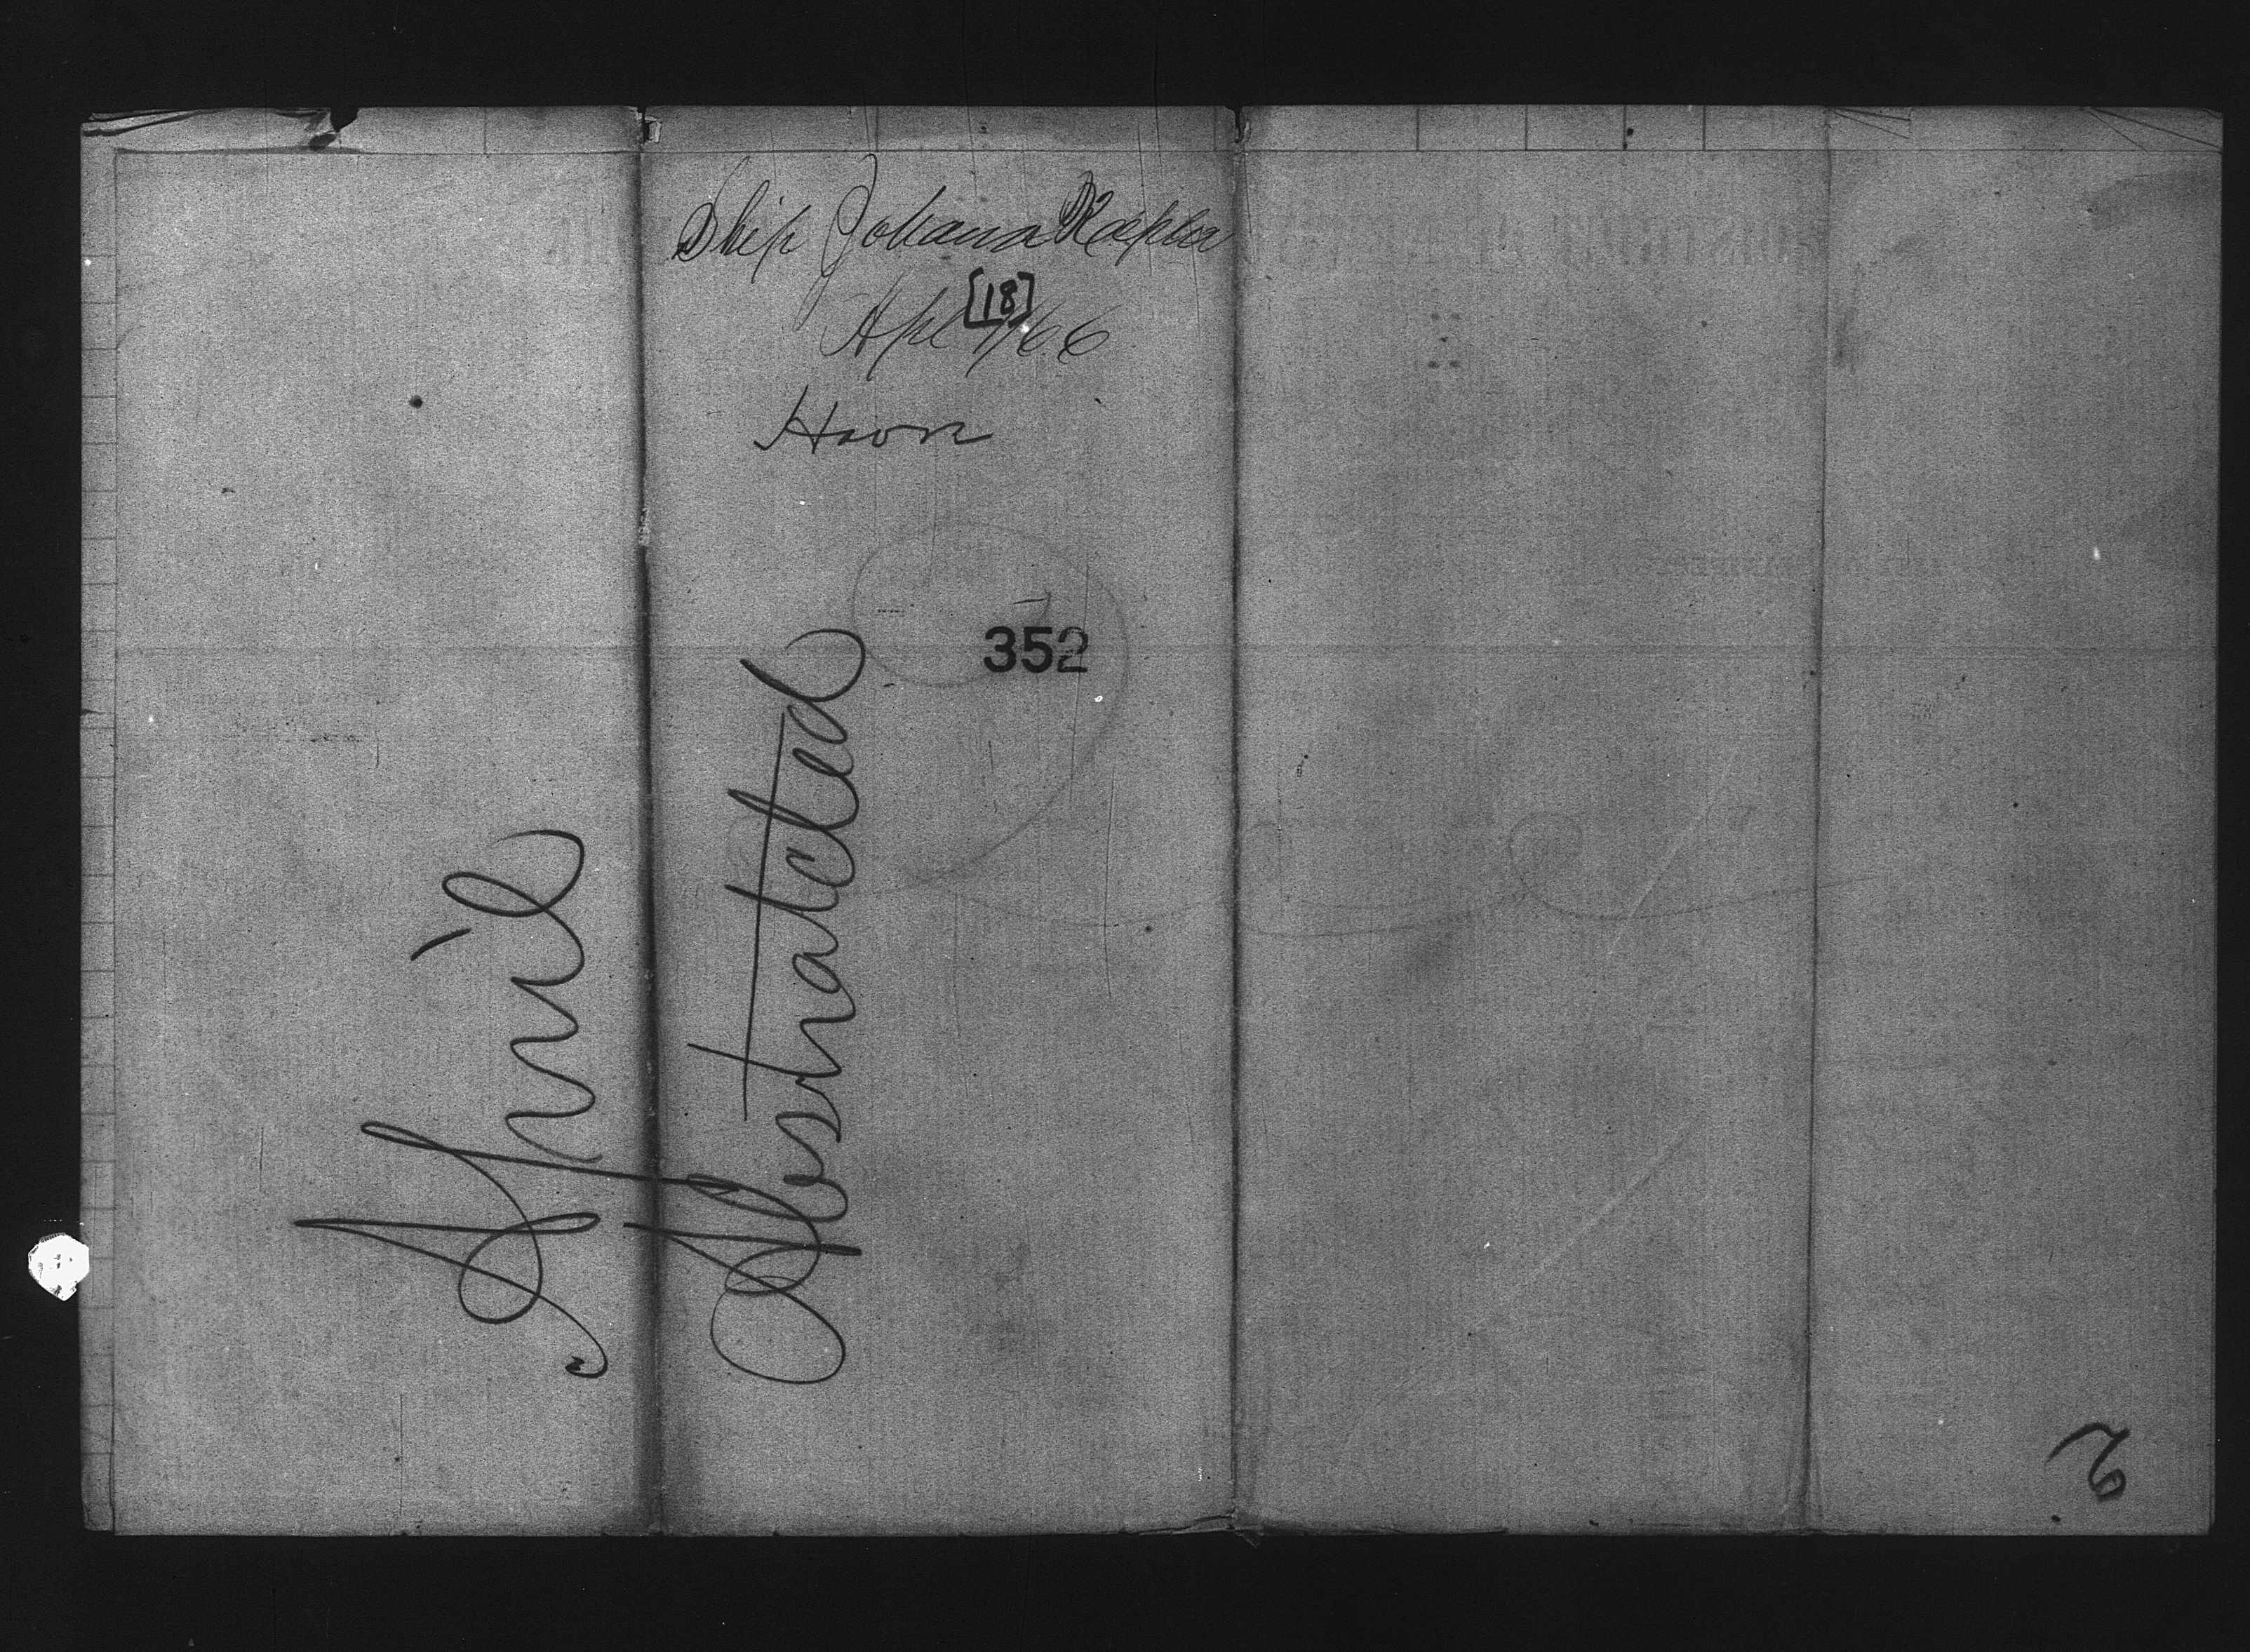 Ship Johanna Kepler
[18]
Apl 9/66
Havre
352
April
Abstracted
2